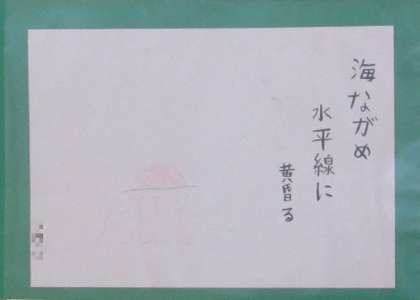 海ながめ
水平線に
黄昏る